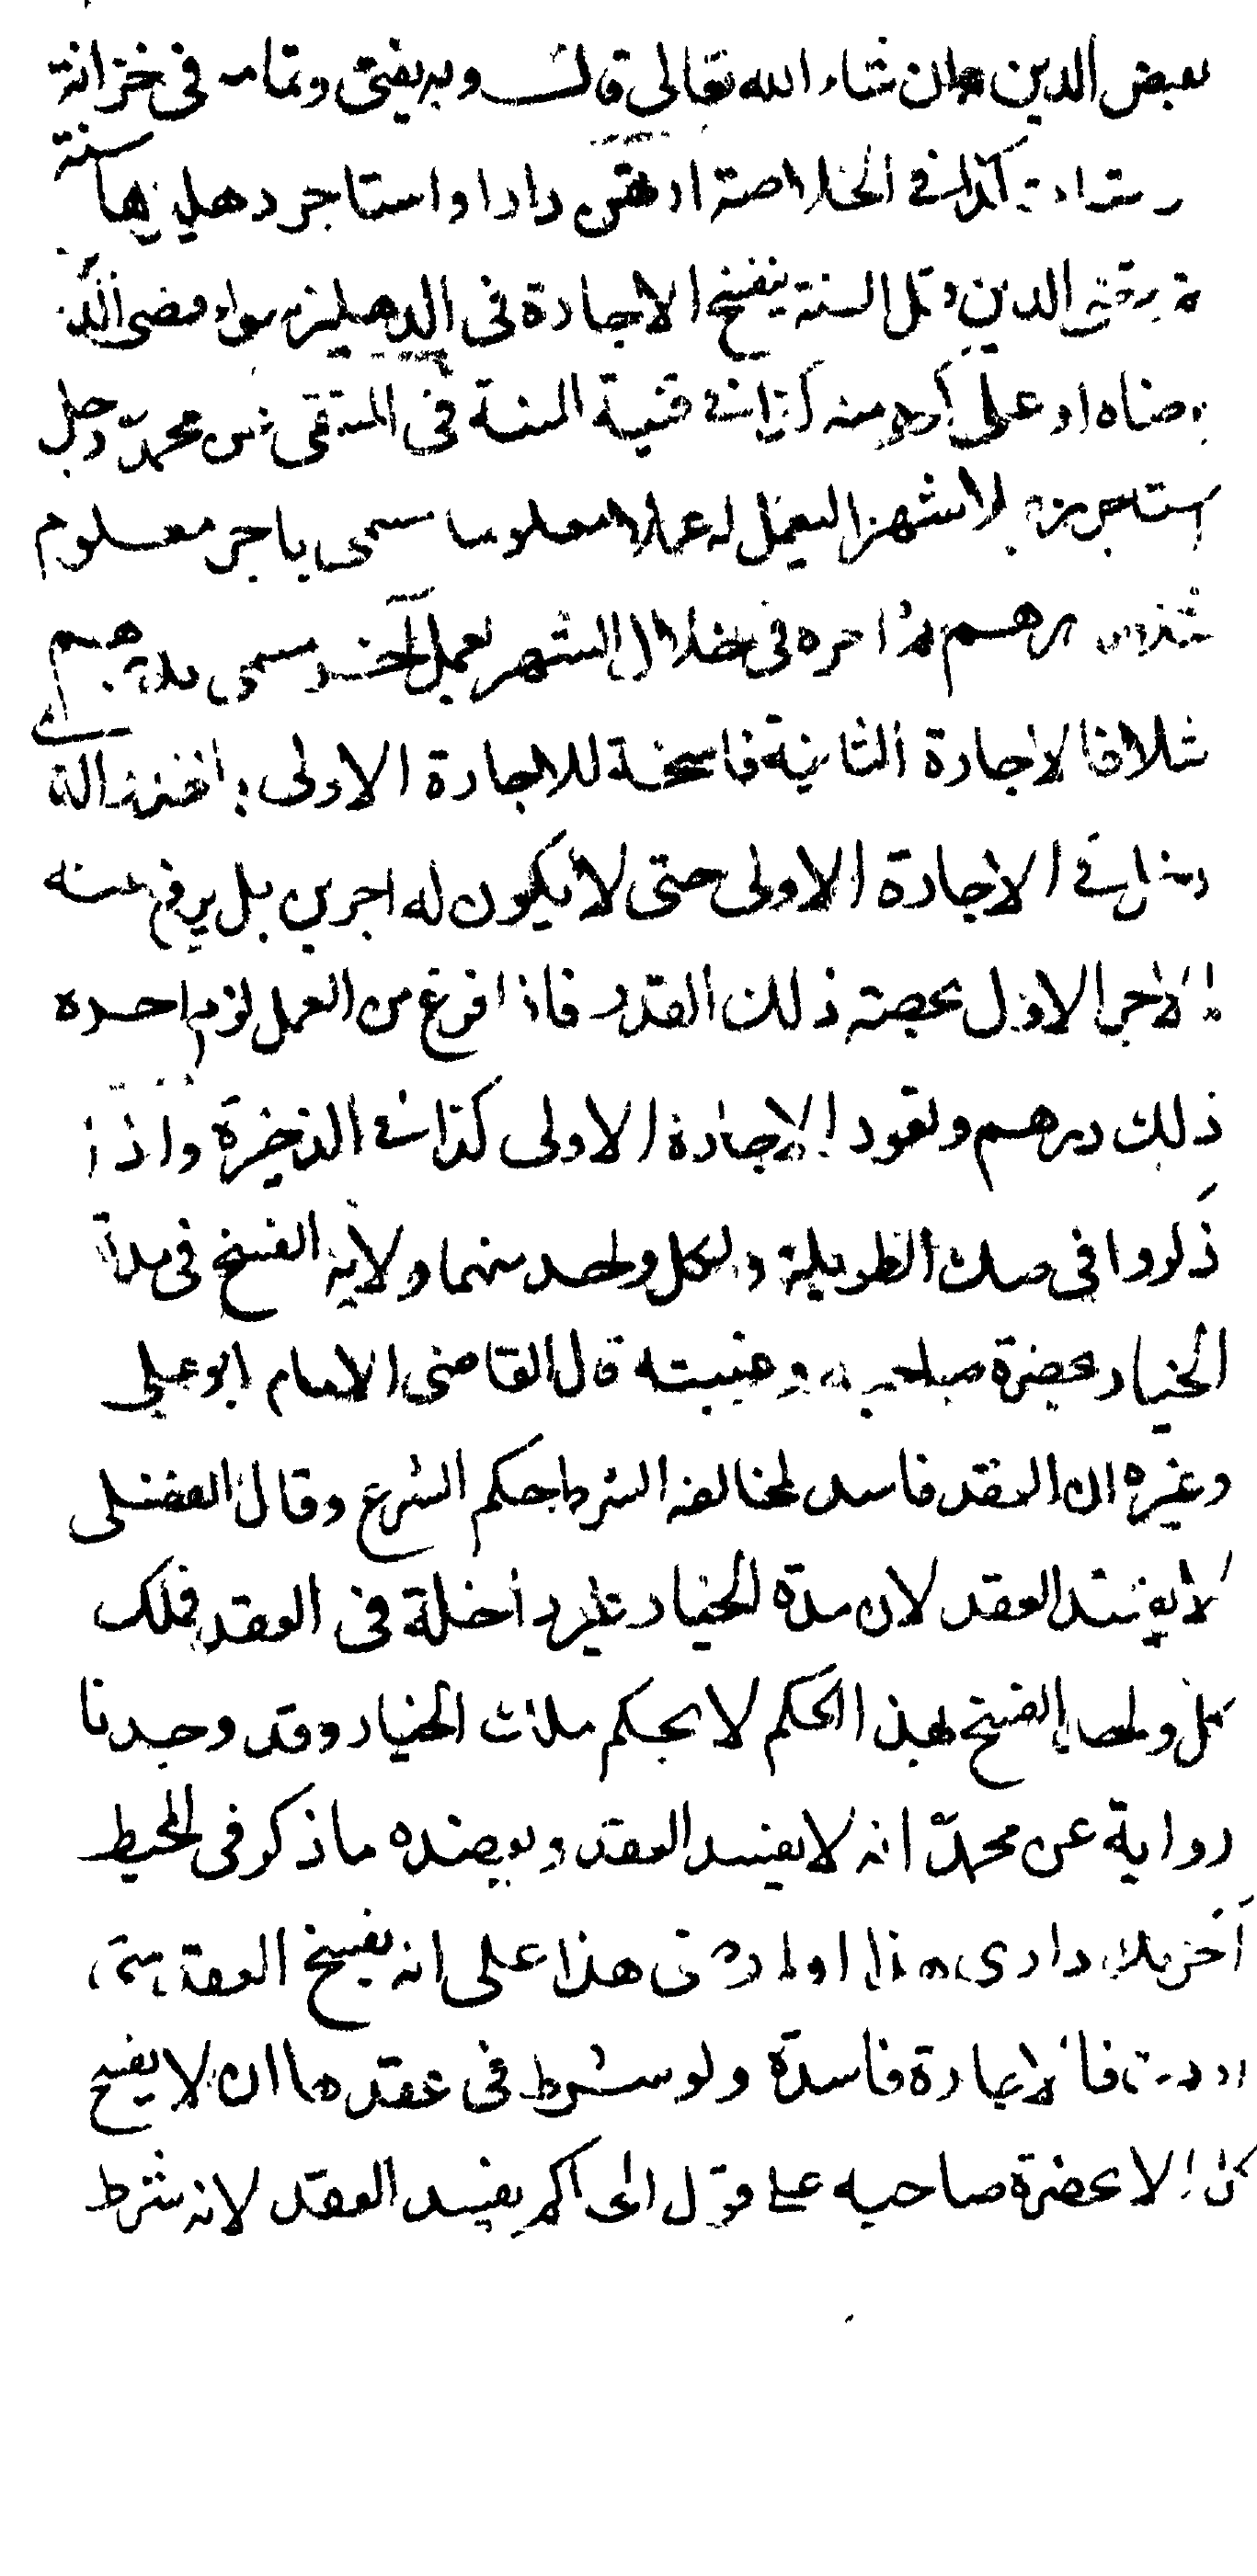 بعض الدين وان شاء الله تعالى قال وبه يفتى وتمامه فى خزانة
كذا فى الخلاصة ارتهن دارا واستاجر دهليزها سنة
الدين قبل السنة ينفسخ الاجارة فى الدهليز سواء قضى الدين
برضاه او على كره منه كذا فى قنية المنية فى المنتقى عن محمد رجل
استاجر رجلا شهرا ليعمل له عملا معلوما سمى باجر معلوم
درهم ثم اجره فى خلال الشهر لعمل آخر سمى بدرهم
مثلا فالاجارة الثانية فاسخة للاجارة الاولى
الاجارة الاولى حتى لا يكون له اجرين بل يرفع عنه
الاجر الاول بحصته ذلك القدر فاذا فرغ من العمل لزمه اجره
ذلك درهم وتعود الاجارة الاولى كذا فى الذخيرة واذا
ذكروا فى صك الطويلة ولكل واحد منهما ولاية الفسخ فى مدة
الخيار بحضرة صاحبه وغيبته قال القاضى الامام ابو على
وغيره ان العقد فاسد لمخالفه الشرط حكم الشرع وقال الفضلى
لا يفسد العقد لان مدة الخيار غير داخلة فى العقد فملك
كل واحد الفسخ بهذا الحكم لا بحكم الخيار وقد وجدنا
رواية عن محمد انه لا يفسد العقد وبعضده ما ذكر فى المحيط
آخر هذا على انه يفسخ العقد متى
فالاجارة فاسدة ولو شرط فى عقدها ان لا يفسخ
الا بحضرة صاحبه على قول الحاكم يفسد العقد لانه شرط